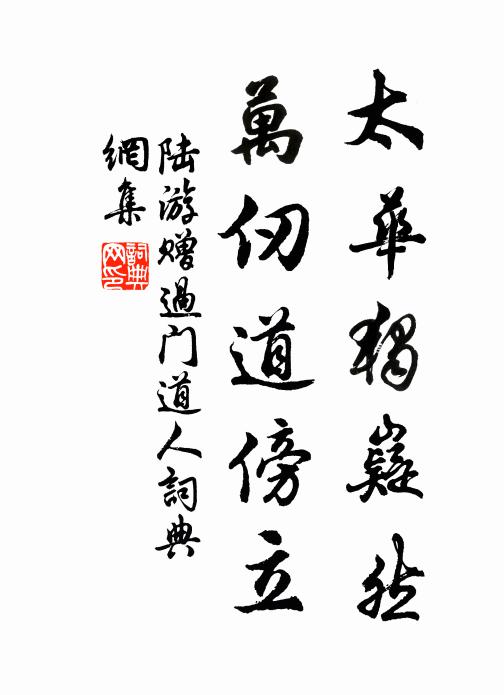 太華獨嶷然
萬仞道傍立
陆游赠過门道人詞典
網集
詞典网印